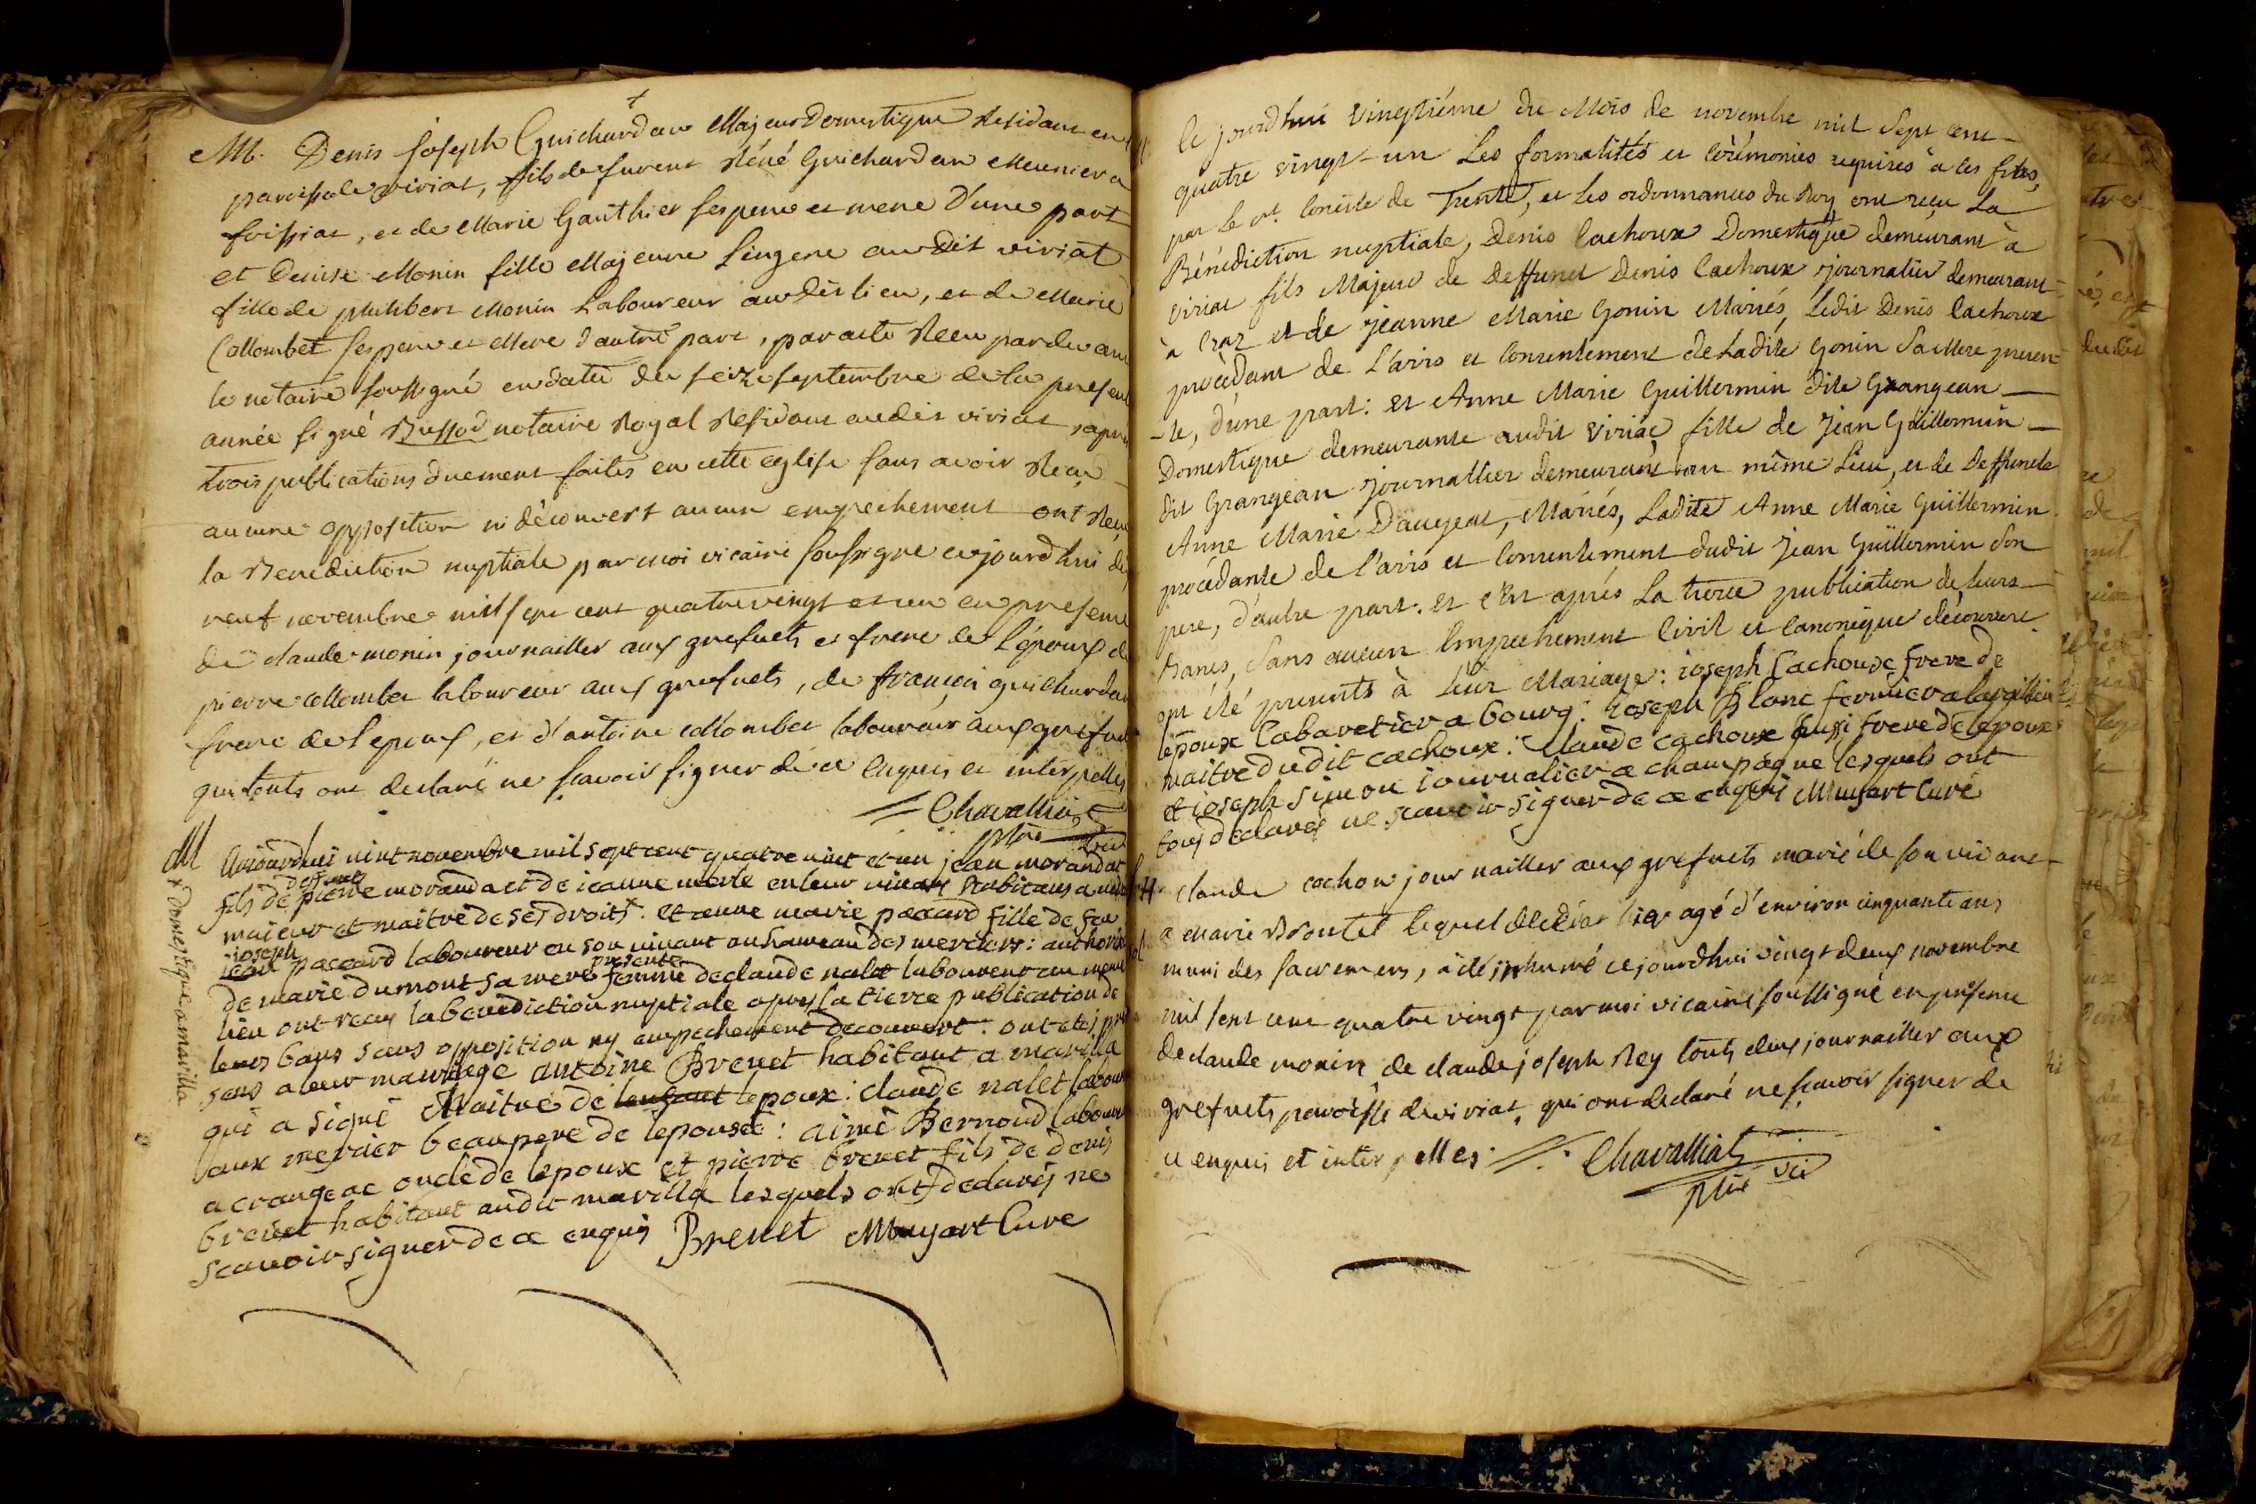 M. Denis Joseph Guichardan Majeur Domestique Residant en
paroisse de viriat, fils de furent Réné Guichardan Meunier a
foissiat, et de Marie Gauthier ses pere et mere d'une part
et Denise Monin fille Majeure Lingere au dit viriat
fille de philibert Monin Laboureur au dit lieu, et de Marie
Collombet ses pere et Mere d'autre part, par acte Reçu par devant
le notaire soussigné en datte du seize septembre de la presente
année signé Buffod notaire Royal Residant au dit viriat, apres
trois publications duement faites en cette eglise sans avoir Reçu
aucune opposition ni découvert aucun empechement ont Reçu
la Benediction nuptiale par moi vicaire soussigné cejourd'hui dix
neuf novembre mil sept cent quatre vingt et un en presence
de claude monin journailler aux grefuets et frere de l'épouse de
pierre collombet laboureur aux grefuets, de francois guichardan
frere de l'epoux, et d'antoine collombet laboureur aux grefuets
qui touts ont declaré ne scavoir signer de ce enquis et interpelles
Chavalliat
ptre vic
M Aujourdhui vint novembre mil sept cent quatre vint et un jean morandat
deffunct
fils de pierre morandat et de jeanne merle en leur vivant habitans a
majeur et maitre de ses droits x. et anne marie paccard fille de feu
joseph
jean paccard laboureur en son vivant au hameau des merciers: authorisée
presente
de marie dumont sa mere femme de claude nalet laboureur au meme
lieu ont reçus la benediction nuptiale apres la tierce publication de
leurs bans sans opposition ny empechement decouvert. ont etes pre
sens a leur mariage antoine Brevet habitant a marilla
qui a signé Maitre de lenfant lepoux: claude nalet labour
aux mercier beaupere de lepousée: aimé Bernoud labour
a crangeac oncle de lepoux et pierre brevet fils de denis
brevet habitant audit marilla lesquels ont declarés ne
scavoir signer de ce enquis Brevet Muyart Curé
x domestique a marilla
le jourdhui Vingtiéme du Mois de novembre mil sept cent
quatre vingt-un Les formalités et cérémonies requises à ces fins,
par le st. Concile de Trente, et les ordonnances du Roy ont reçu La
Bénédiction nuptiale, Denis Cachoux Domestique demeurant à
viriat fils Majeur de Deffunct Denis Cachoux journalier demeurant
à Craz et de jeanne Marie Gonin Mariés, Ledit Denis Cachoux
procédant de L'avis et Consentement de Ladite Gonin Sa Mere présen
-te, d'une part: et Anne Marie Guillermin dite Grangean
Domestique demeurante audit Viriat fille de Jean Guillermin
dit Grangean journallier demeurant au même Lieu, et de Deffuncte
Anne Marie Daugeat, Mariés, Ladite Anne Marie Guillermin
procédante de l'avis et Consentement dudit Jean Guillermin Son
pere, d'autre part. et c'est aprés La tierce publication de leurs
Banes, Sans aucun Empechement Civil et Canonique découvert
ont été présents à Leur Mariage: ioseph Cachoux frere de
lépoux Cabaretier a bourg: ioseph Blanc fermier a
maitre dudit cachoux: Claude cachoux aussi frere de lepoux
et ioseph simon iournalier a champagne lesquels ont
tous declarés ne scavoir signer de ce enquis Muyart Curé
Claude cachou journailler aux grefuets marié de son vivant
a marie Broutet lequel decéda hier agé d'environ cinquante ans
muni des sacremens, a été inhumé cejourd'hui vingt deux novembre
mil sept cent quatre vingt par moi vicaire soussigné en presence
de claude monin de claude joseph Rey touts deux journailler aux
grefuets paroisse de viriat qui ont declaré ne scavoir signer de
ce enquis et interpelles. Chavalliat
ptre vic